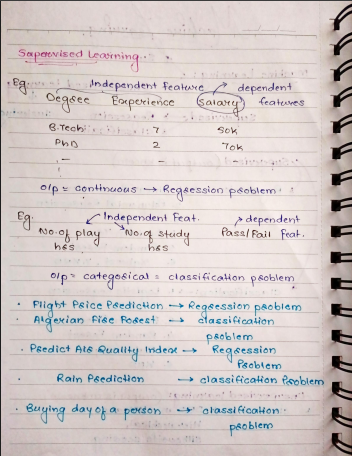 Supervised Learning.
Eg. Independent Feature → dependent
Degree Experience Salary features
B.Tech 7 50k
PhD 2 70k
- - -
o/p = continuous → Regression problem
Eg. Independent Feat. dependent
No. of play No. of study Pass/Fail Feat.
hrs hrs
o/p = categorical = classification problem
• Flight Price Prediction → Regression problem
• Algerian Fire Forest → classification
problem
• Predict Air Quality Index → Regression
Problem
• Rain Prediction → classification Problem
• Buying day of a person → classification
problem